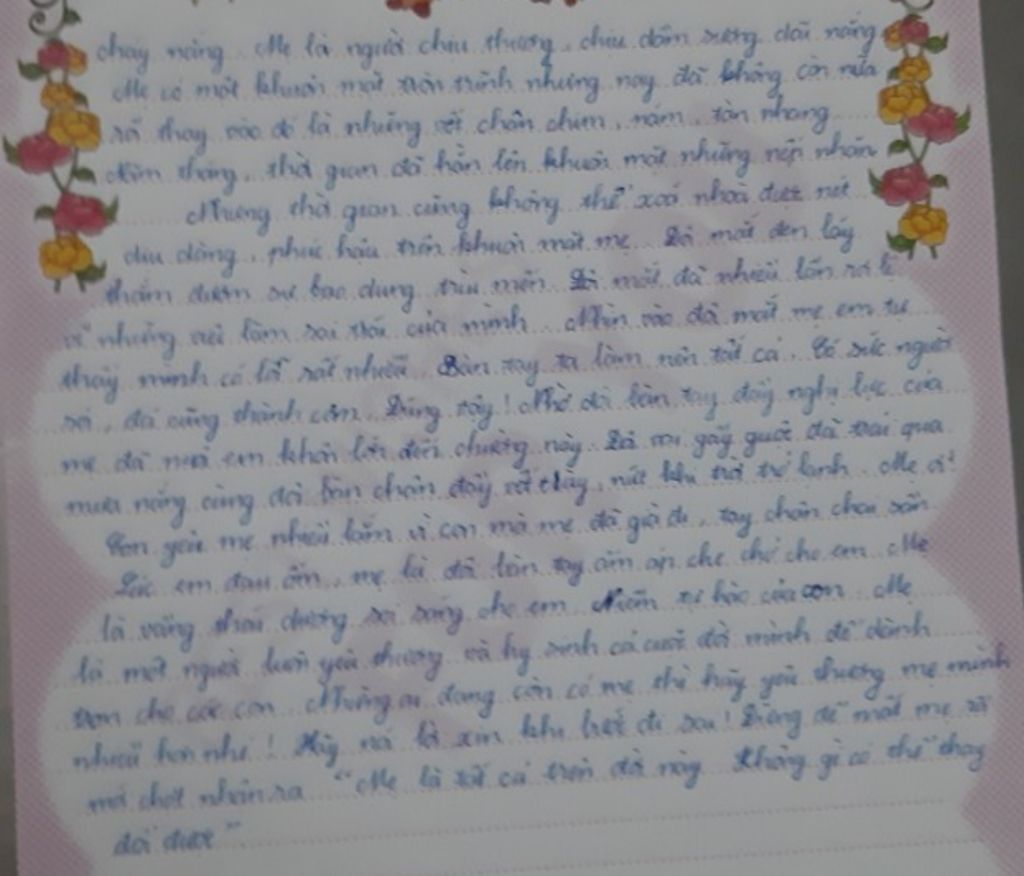 cháy nắng. Mẹ là người chịu thương, chịu dầm sương dãi nắng.
Mẹ có một khuôn mặt tròn trĩnh nhưng nay đã không còn nữa
rồi thay vào đó là những vết chân chim, nám, tàn nhang
năm tháng, thời gian đã hằn lên khuôn mặt những nếp nhăn
Nhưng thời gian cũng không thể xoá nhoà được nét
dịu dàng, phúc hậu trên khuôn mặt mẹ. Đôi mắt đen láy
thấm đượm sự bao dung, trìu mến. Đôi mắt đã nhiều lần rơi lệ
vì những việc làm sai trái của mình. Nhìn vào đôi mắt mẹ em tự
thấy mình có lỗi rất nhiều. Bàn tay ta làm nên tất cả. Có sức người
sỏi, đá cũng thành cơm. Đúng vậy! Nhờ đôi bàn tay đầy nghị lực của
mẹ đã nuôi em khôn lớn đến chường này. Đôi vai gầy guộc đã trải qua
mưa nắng cùng đôi bàn chân đầy vết chày, nứt khi trời trở lạnh. Mẹ ơi!
Con yêu mẹ nhiều lắm vì con mà mẹ đã già đi, tay chân chai sần
Lúc em đau ốm, mẹ là đôi bàn tay ấm áp che chở cho em. Mẹ
là vầng thái dương soi sáng cho em. Niềm tự hào của con. Mẹ
là một người luôn yêu thương và hy sinh cả cuộc đời mình để dành
trọn cho các con. Những ai đang còn có mẹ thì hãy yêu thương mẹ mình
nhiều hơn nhé! Hãy nói lời xin khi biết đi sai! Đừng để mất mẹ rồi
mới chợt nhận ra "Mẹ là tất cả trên đời này không gì có thể thay
đổi được"